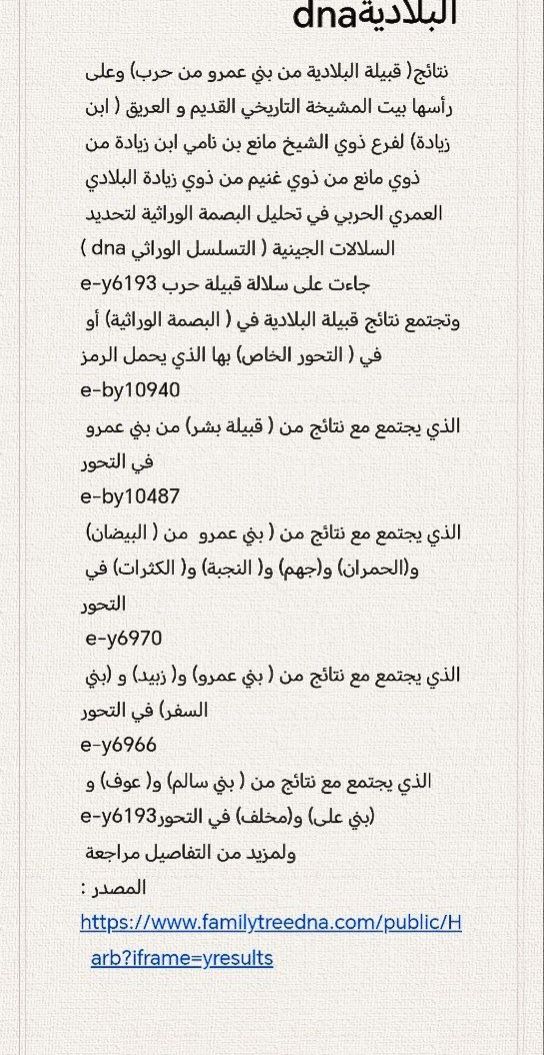 البلاديةdna
نتائج( قبيلة البلادية من بني عمرو من حرب) وعلى
رأسها بيت المشيخة التاريخي القديم و العريق ( ابن
زيادة) لفرع ذوي الشيخ مانع بن نامي ابن زيادة من
ذوي مانع من ذوي غنيم من ذوي زيادة البلادي
العمري الحربي في تحليل البصمة الوراثية لتحديد
السلالات الجينية ( التسلسل الوراثي dna )
جاءت على سلالة قبيلة حرب e-y6193
وتجتمع نتائج قبيلة البلادية في ( البصمة الوراثية) أو
في ( التحور الخاص) بها الذي يحمل الرمز
e-by10940
الذي يجتمع مع نتائج من ( قبيلة بشر) من بني عمرو
في التحور
e-by10487
الذي يجتمع مع نتائج من ( بني عمرو من ( البيضان)
و(الحمران) و(جهم) و( النجبة) و( الكثرات) في
التحور
e-y6970
الذي يجتمع مع نتائج من ( بني عمرو) و( زبيد) و (بني
السفر) في التحور
e-y6966
الذي يجتمع مع نتائج من ( بني سالم) و( عوف) و
(بني على) و(مخلف) في التحورe-y6193
ولمزيد من التفاصيل مراجعة
المصدر :
https://www.familytreedna.com/public/H
arb?iframe=yresults